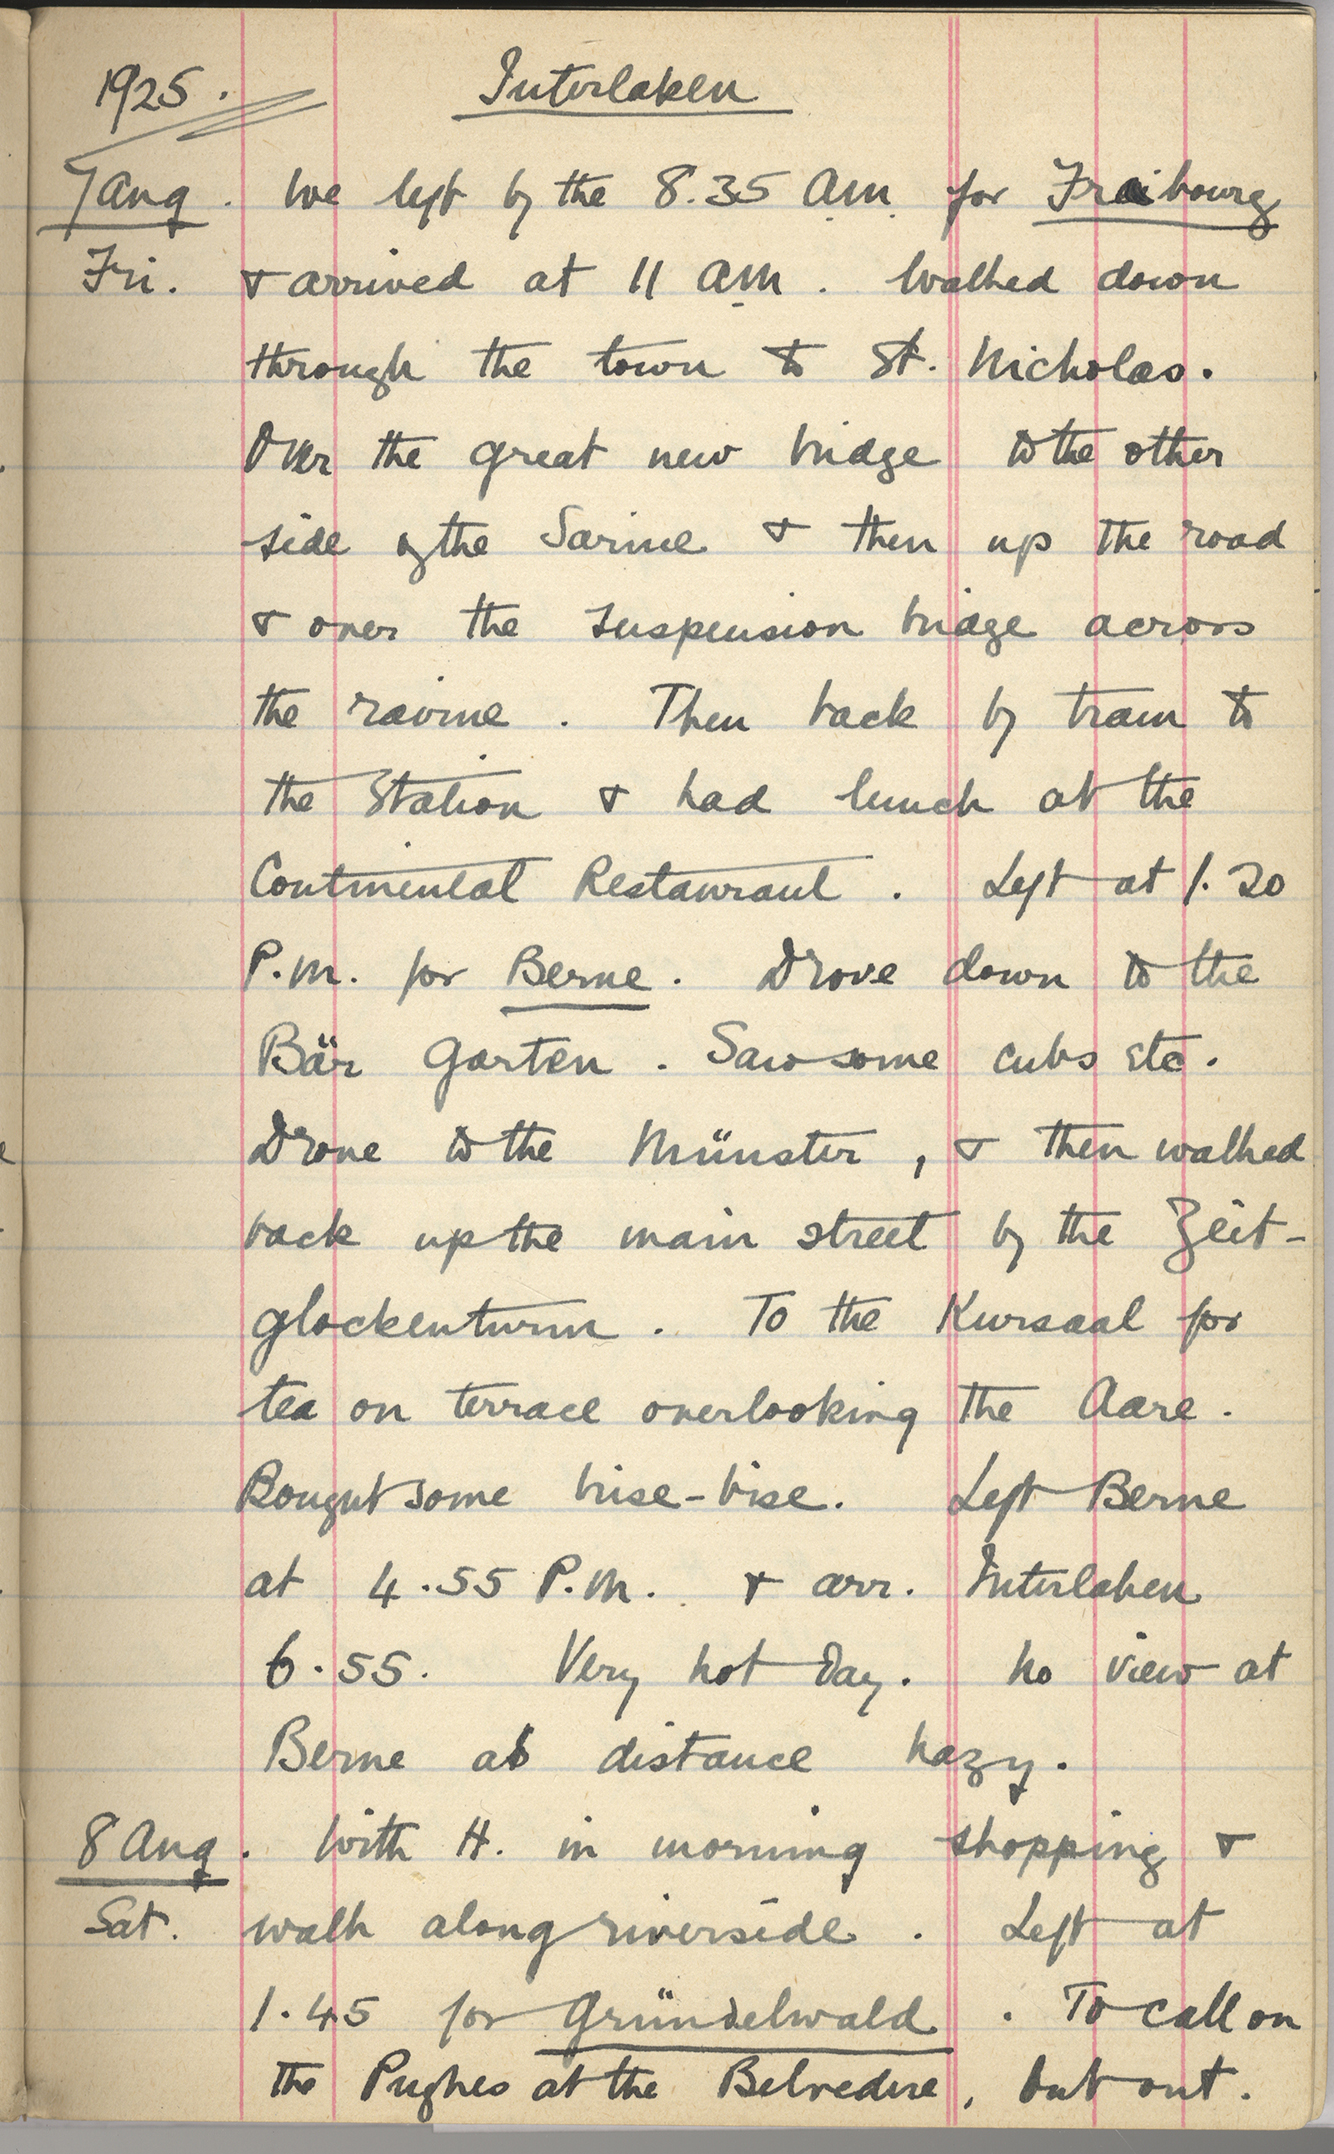 1925. Interlaken
7 Aug. We left by the 8.35 am for Freibourg
Fri. & arrived at 11 am. Walked down
through the town to St. Nicholas.
Over the great new bridge to the other
side of the Sarine & then up the road
& over the suspension bridge across
the ravine. Then back by tram to
the Station & had lunch at the
Continental Restaurant. Left at 1.20
P.M. for Berne. Drove down to the
Bär Garten. Saw some cubs etc.
Drove to the Münster, & then walked
back up the main street by the Zeit-
glockenturm. To the Kursaal for
tea on terrace overlooking the Aare.
Bought some brise-bise. Left Berne
at 4.55 P.M. & arr. Interlaken
6.55. Very hot day. No view at
Berne as distance hazy.
8 Aug. With H. in morning shopping &
Sat. walk along riverside. Left at
1.45 for Gründelwald. To call on
the Pughes at the Belvedere, but out.